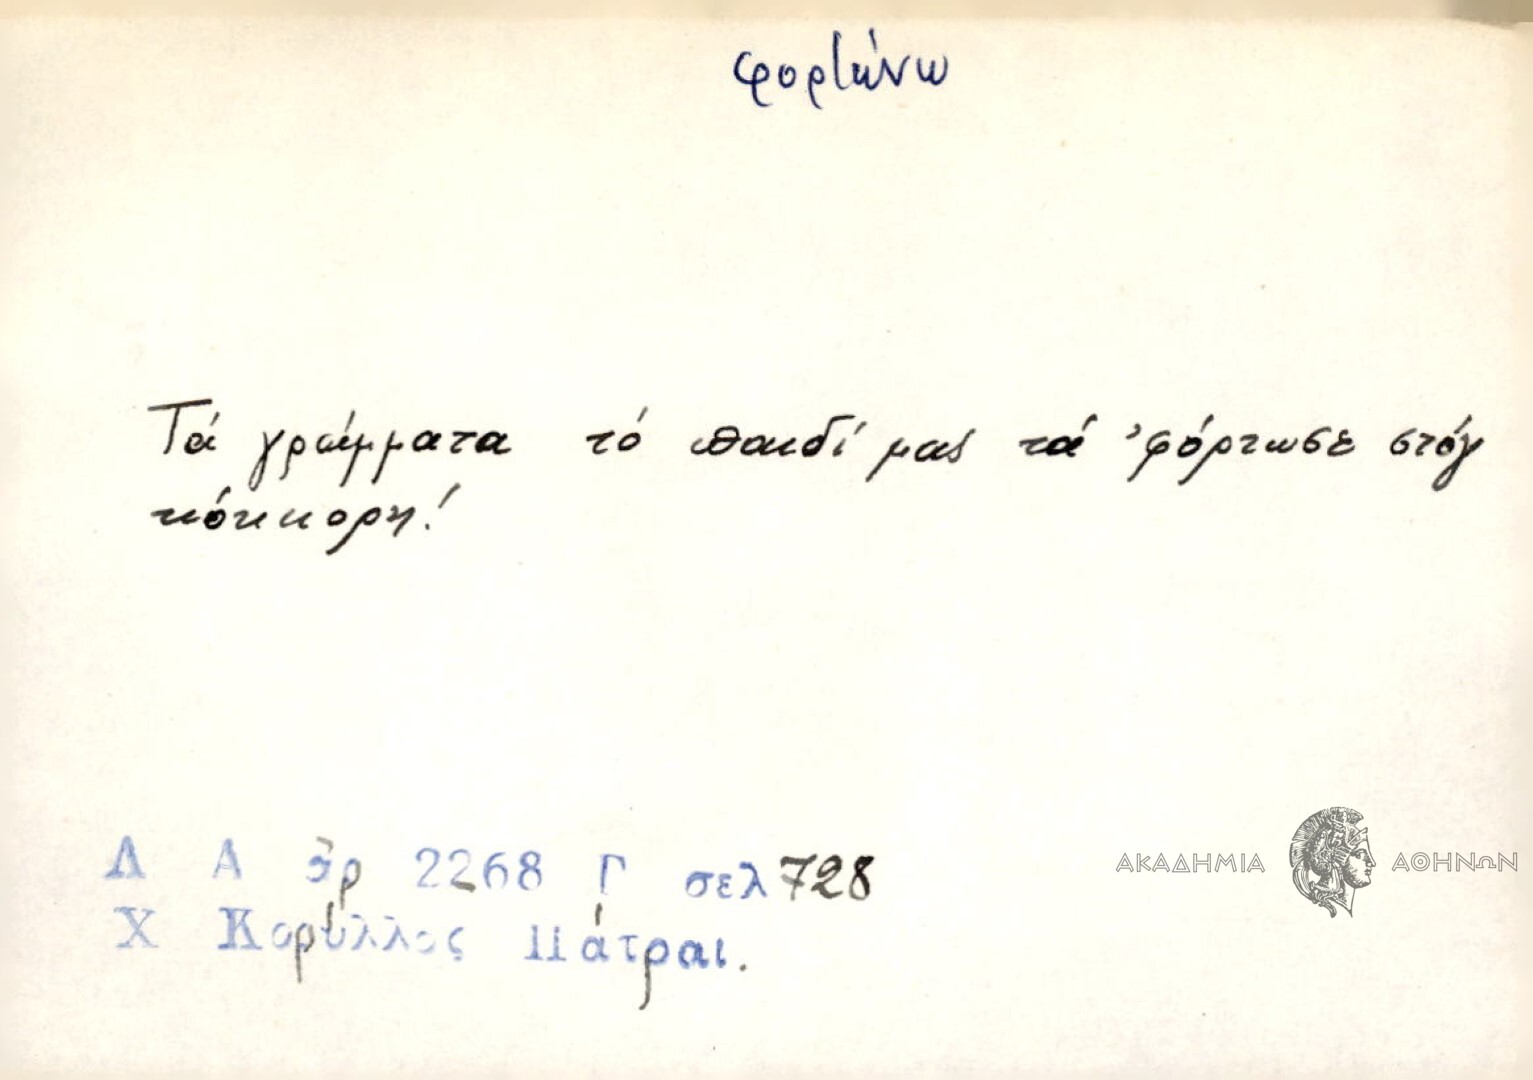 φορτώνω
Τά γράμματα τό παιδί μας τά 'φόρτωσε στόγ
κόκκορη!
Λ Α ἀρ 2268 Γ σελ 728
Χ Κορύλλος Πάτραι.
ΑΚΑΔΗΜΙΑ ΑΘΗΝΩΝ